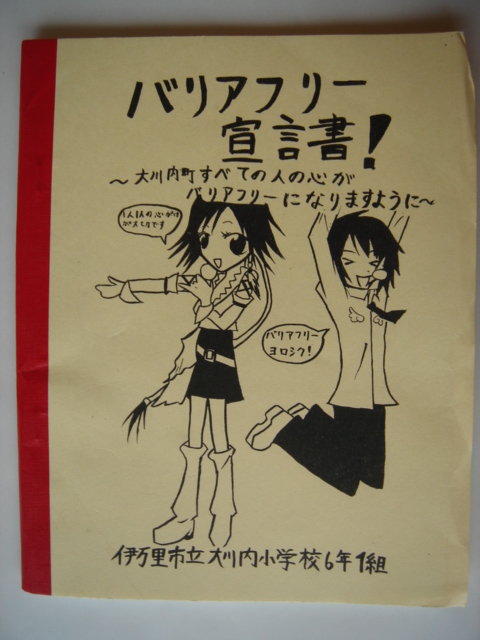 バリアフリー
宣言書!
～大川内町すべての人の心が
バリアフリーになりますように～
1人1人の心がけ
が大切です
バリアフリー
ヨロシク!
伊万里市立大川内小学校6年1組